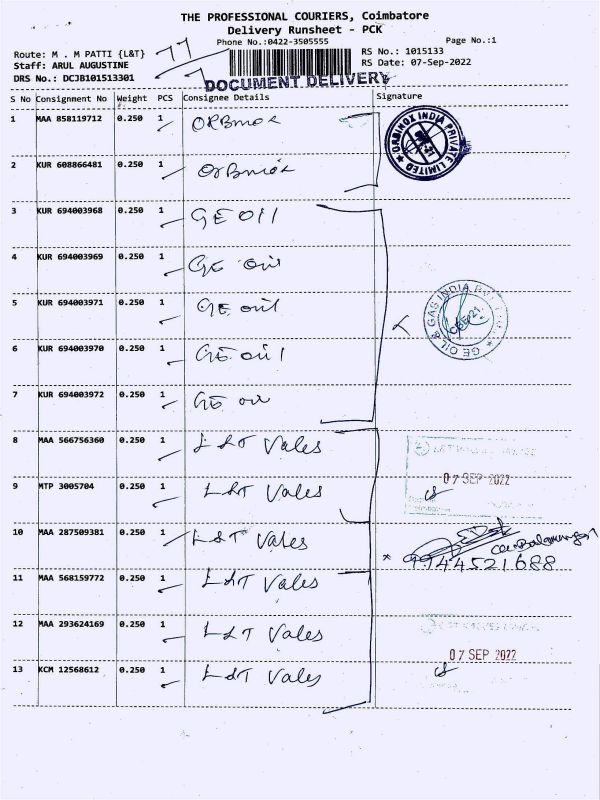 THE PROFESSIONAL COURIERS, Coimbatore
Delivery Runsheet - PCK
Phone No.:0422-3505555 Page No.:1
Route: M . M PATTI {L&T} RS No.: 1015133
Staff: ARUL AUGUSTINE RS Date: 07-Sep-2022
DRS No.: DCJB101513301
77
DOCUMENT DELIVERY
S No Consignment No Weight PCS Consignee Details Signature
1 MAA 858119712 0.250 1 ORBinox
ORBINOX INDIA PRIVATE LIMITED
2 KUR 608866481 0.250 1 ORBinox
3 KUR 694003968 0.250 1 GE OIl
4 KUR 694003969 0.250 1 GE Oil
5 KUR 694003971 0.250 1 GE oil
GE OIL & GAS INDIA
CBE-21
6 KUR 694003970 0.250 1 GE oil
7 KUR 694003972 0.250 1 GE oil
8 MAA 566756360 0.250 1 L&T Vales
07 SEP 2022
9 MTP 3005704 0.250 1 L&T Vales
10 MAA 287509381 0.250 1 L&T Vales
9944521688
11 MAA 568159772 0.250 1 L&T Vales
12 MAA 293624169 0.250 1 L&T Vales
07 SEP 2022
13 KCM 12568612 0.250 1 L&T Vales